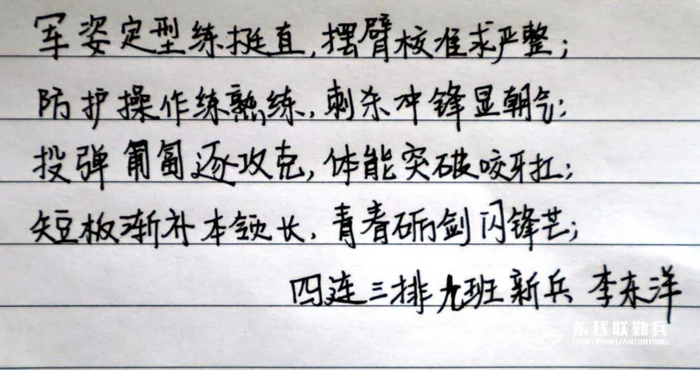 军姿定型练挺直，摆臂校准求严整；
防护操作练熟练，刺杀冲锋显朝气；
投弹匍匐逐攻克，体能突破咬牙扛；
短板渐补本领长，青春砺剑闪锋芒；
四连三排九班新兵 李东洋
东线联勤兵
DONGXIANLIANQINBING